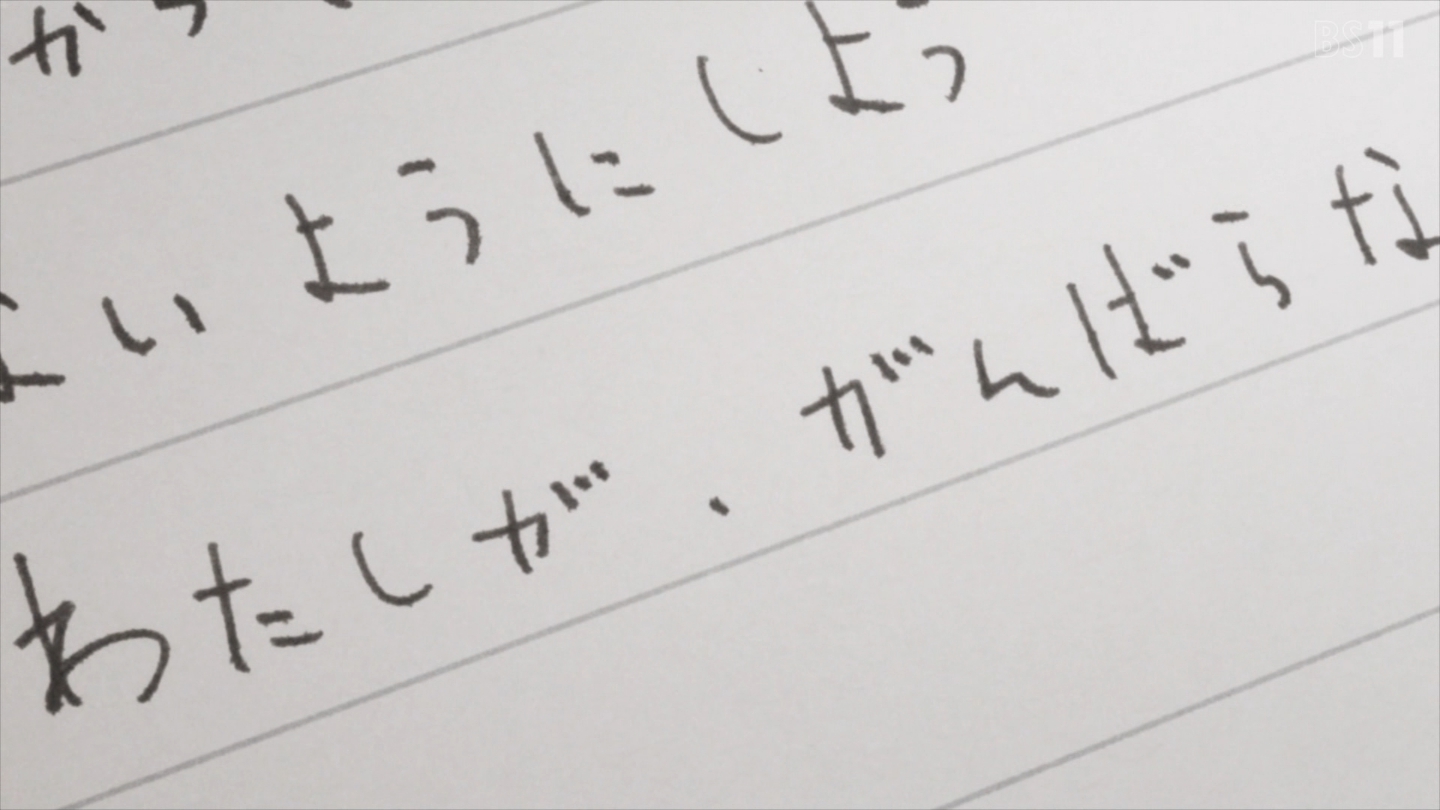 BS11
いようにしよう
わたしが、がんばらな